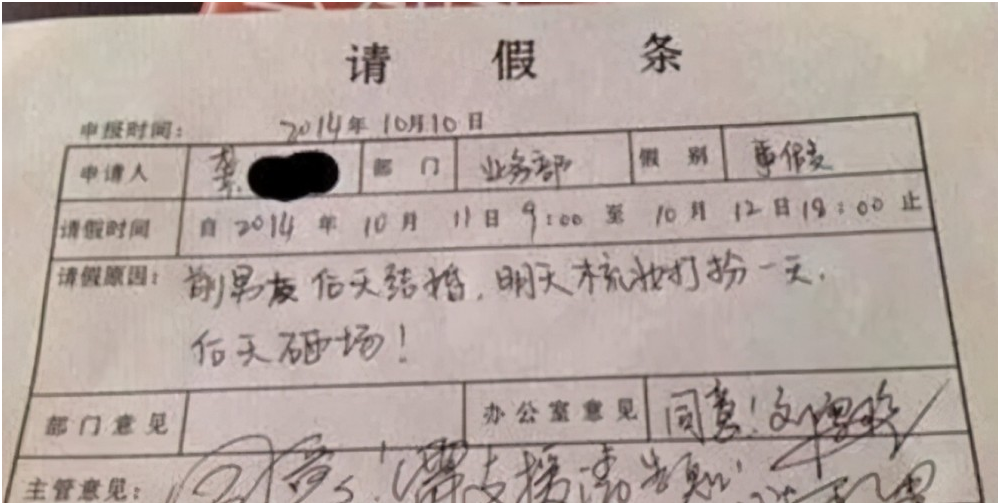 请假条
申报时间: 2014年10月10日
申请人 龚 部门 业务部 假别 事假
请假时间 自2014年10月11日9:00至10月12日18:00止
请假原因: 前男友后天结婚,明天梳妆打扮一天,
后天砸场!
部门意见 办公室意见 同意!
主管意见: 同意!需支援请告知!